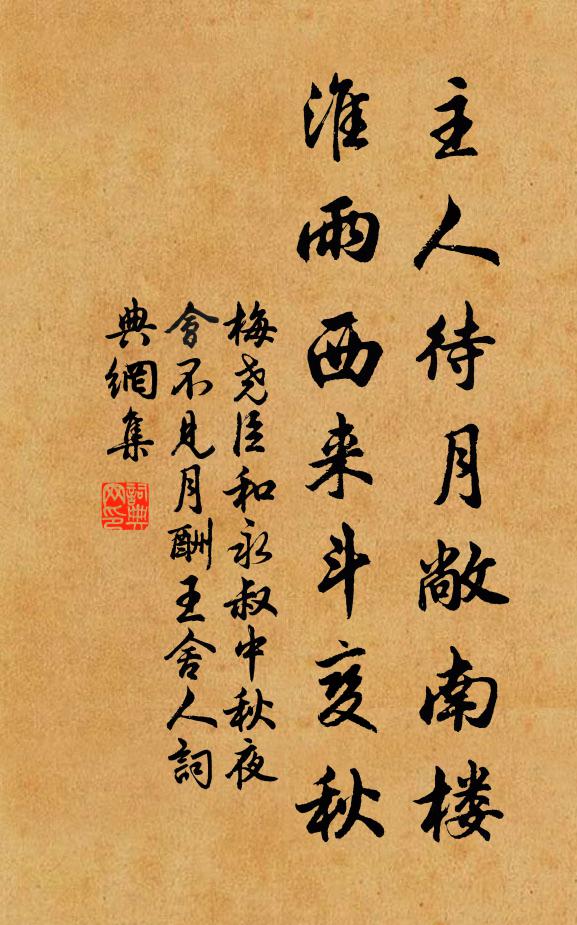 主人待月敞南楼
淮雨西来斗变秋
梅尧臣和永叔中秋夜
會不见月酬王舍人詞
典網集
詞典網印